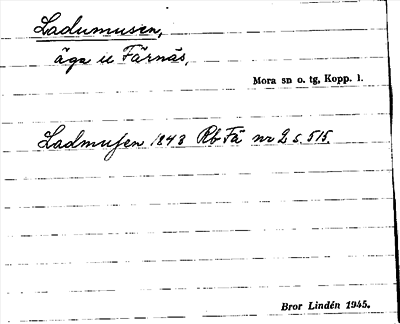 Ladumusen,
äga u Färnäs,
Mora sn o. tg, Kopp. l.
Ladmusen 1843 Rb Fä nr 2 s. 515.
Bror Lindén 1945.